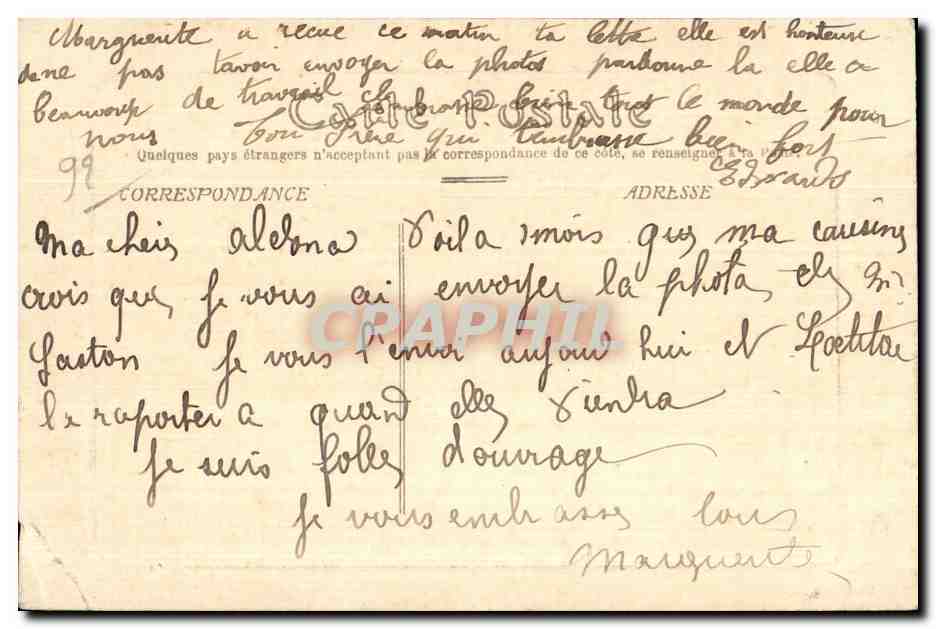 Marguerite a recue ce matin ta lettre elle est honteuse
de ne pas tavoir envoyer la photos pardonne la elle a
beaucoup de travail Embrasse bien tout le monde pour
Carte Postale
nous ton frère qui t'embrasse bien fort
Quelques pays étrangers n'acceptant pas la correspondance de ce côté, se renseigner à la Poste.
Edouard
99
CORRESPONDANCE
ADRESSE
Ma cheir aldona Voila 1 mois que ma cousine
crois que je vous ai envoyer la phota de Mr
CPRAPHIL
Gaston Je vous l'envoi aujourd hui et
le raporter a quand elle viendra
Je suis folle d'ouvrage
Je vous embrasse tous
Marguerite